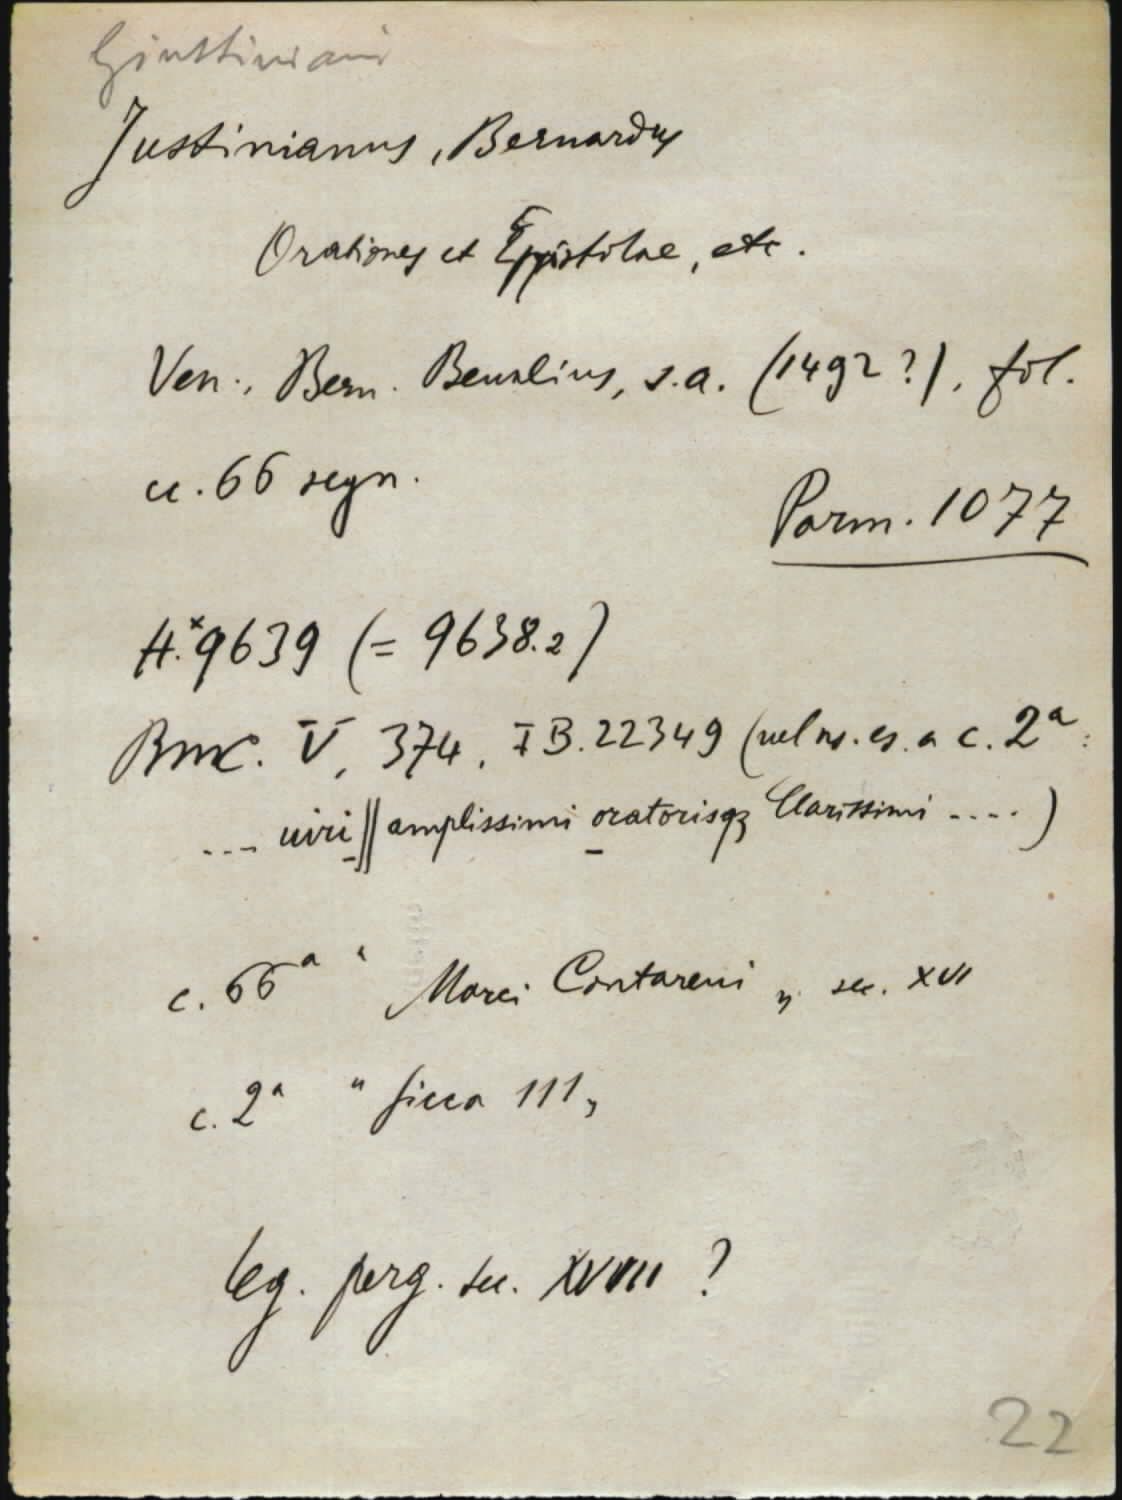 Giustiniani
Justinianus, Bernardus
Orationes et Epistolae, etc.
Ven., Bern. Benalius, s.a. (1492?), fol.
cc. 66 segn.
Parm. 1077
H.*9639 (= 9638.2)
BMC. V, 374, IB.22349 (nel ns. es. a c. 2a:
... uiri || amplissimi oratorisqꝫ Clarissimi ....)
c. 66a "Marci Contareni" sec. XVI
c. 2a "sicca 111"
leg. perg. sec. XVIII ?
22